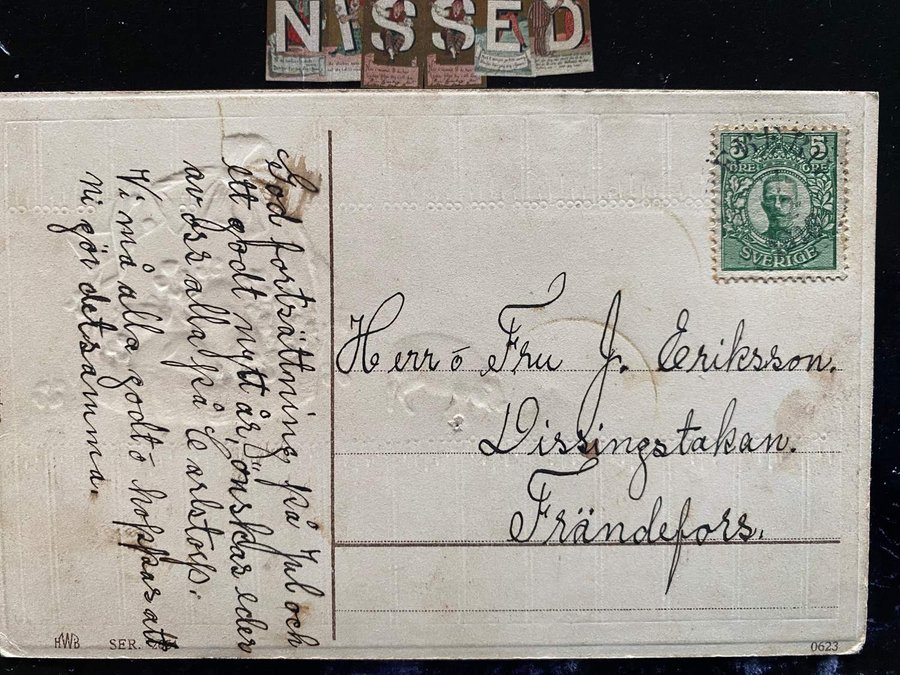 NISSED
God fortsättning på Jul och
ett godt nytt år, önskas eder
av oss alla på Carlstorp.
Vi må alla godt o hoppas att
ni gör detsamma.
5 5
ÖRE ÖRE
SVERIGE
Herr o Fru J. Eriksson.
Dissingstakan.
Frändefors.
HWB SER.
0623